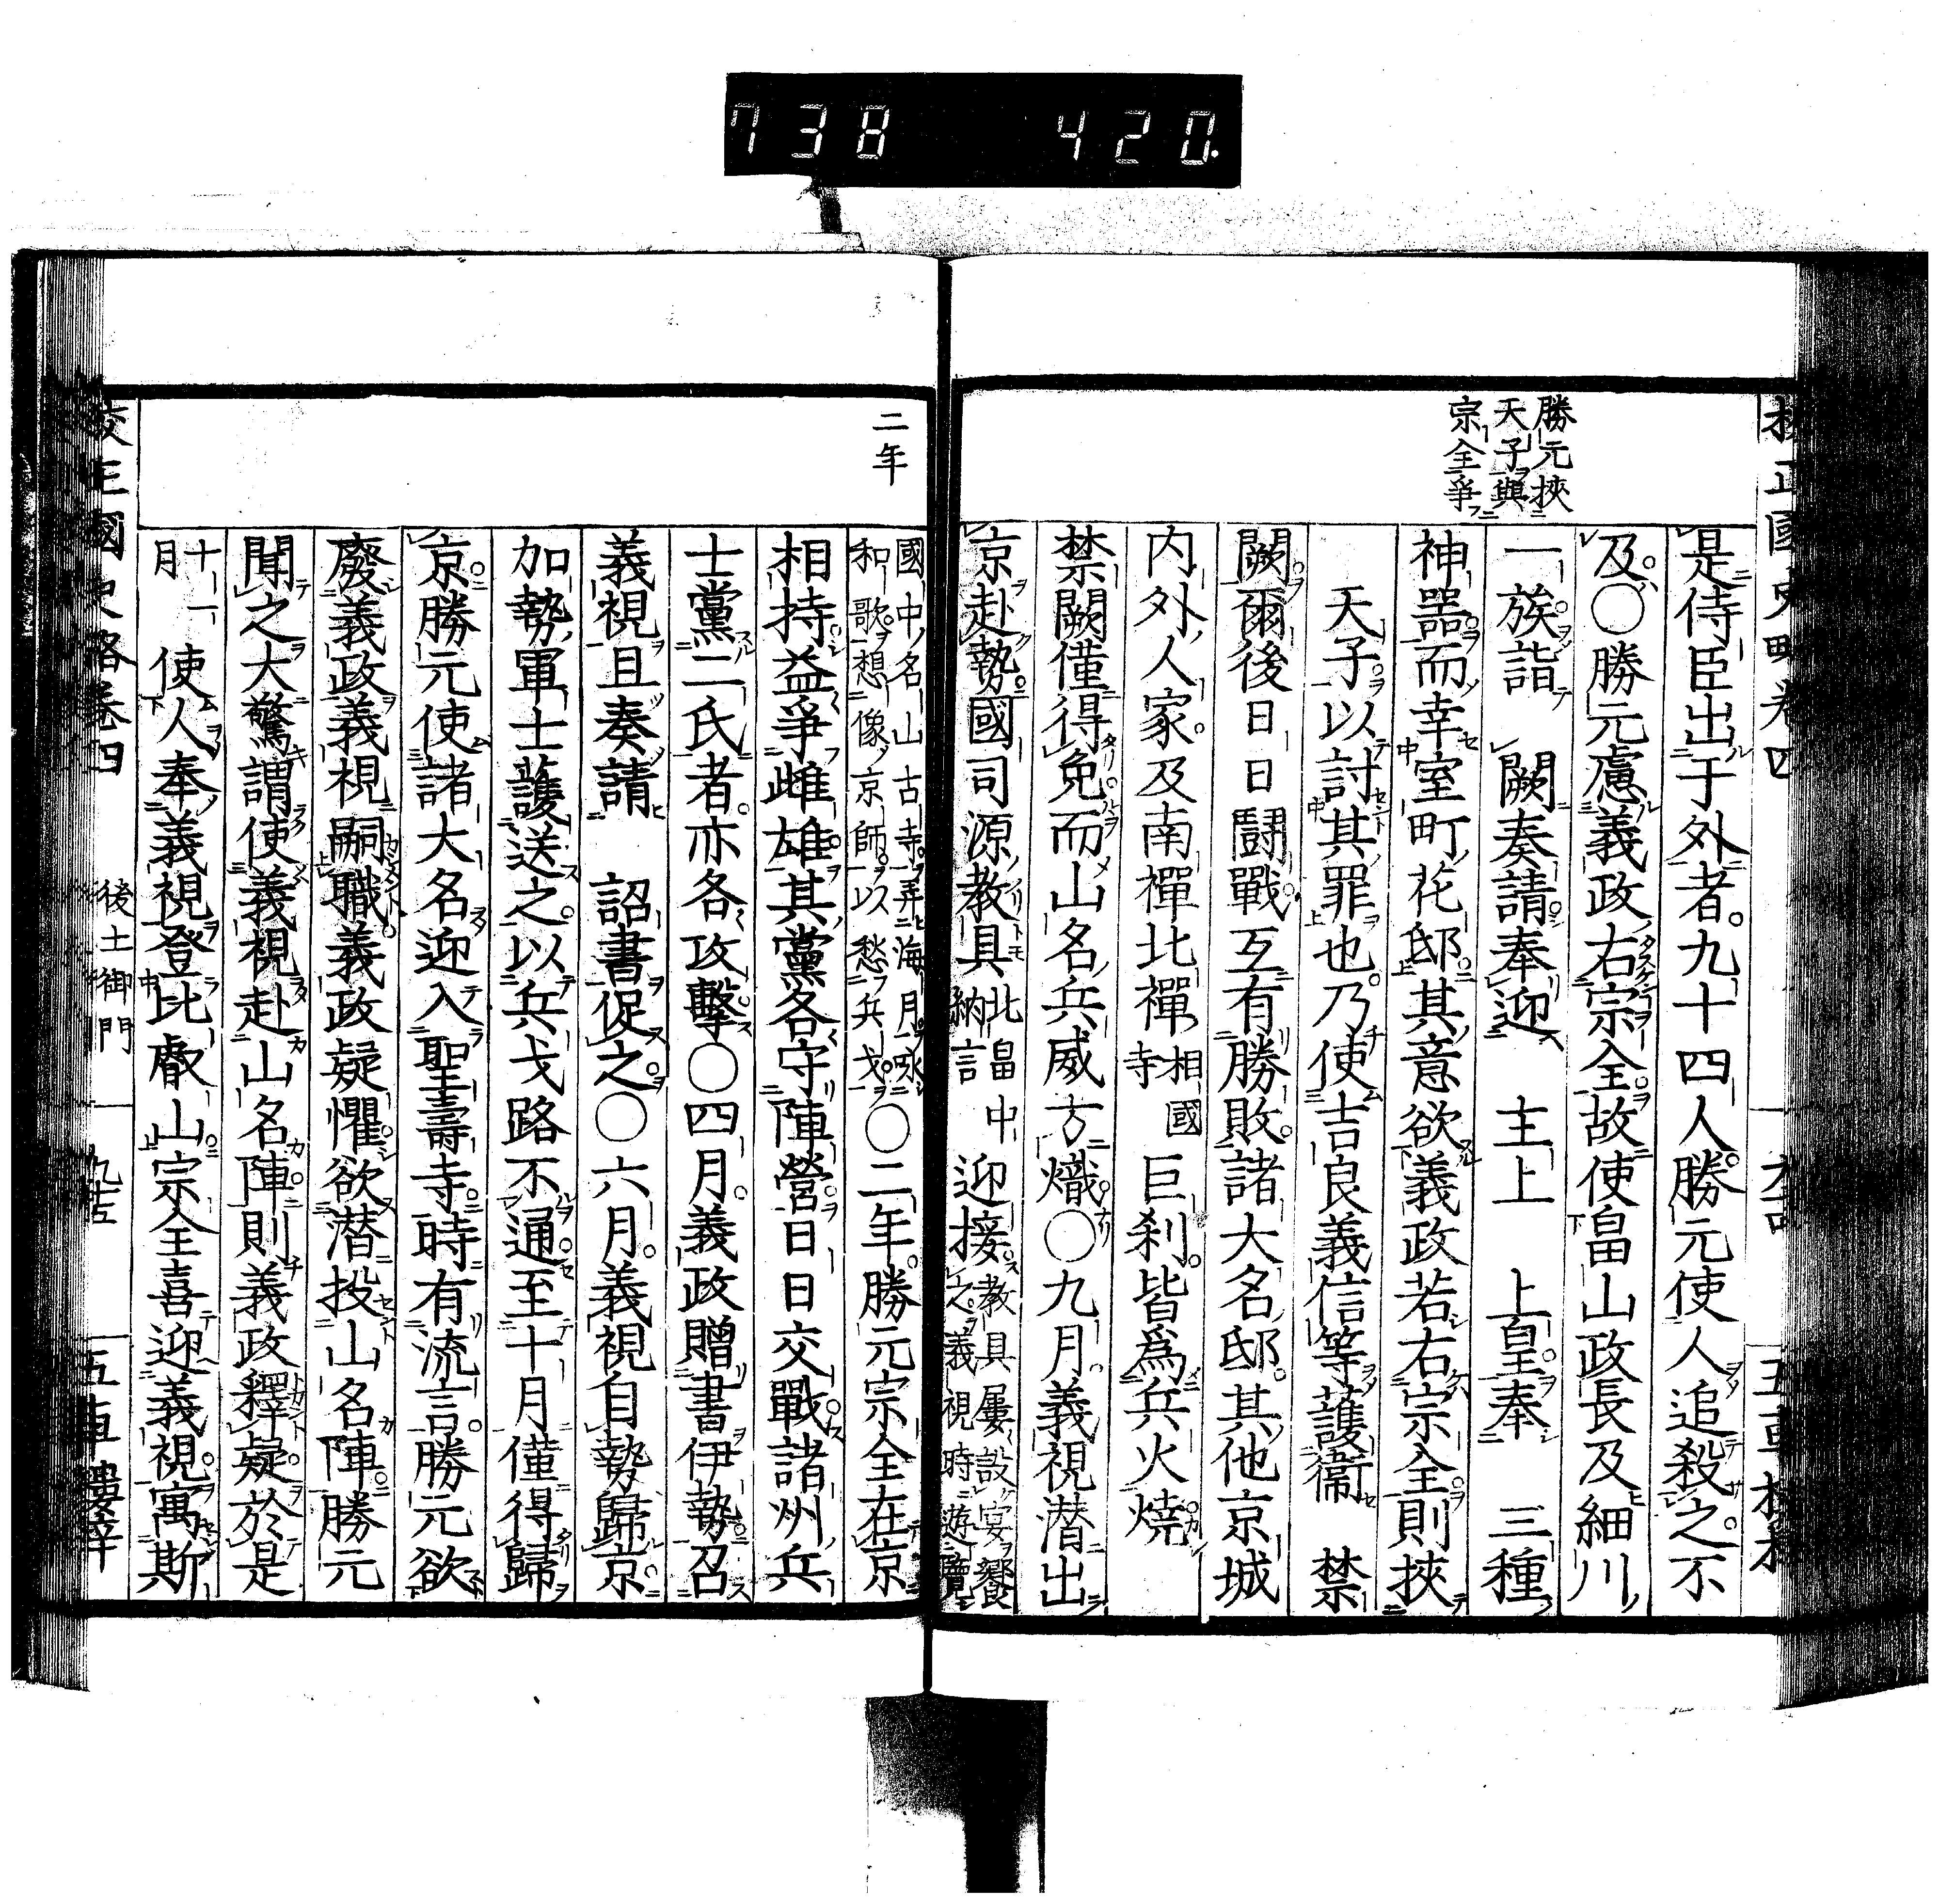 738 420.
校正國史略卷四
勝元挾
天子與
宗全爭
是侍臣出于外者九十四人勝元使人追殺之不
及○勝元慮義政右宗全故使畠山政長及細川
一族詣 闕奏請奉迎 主上 上皇奉 三種
神器而幸室町花邸其意欲義政若右宗全則挾
天子以討其罪也乃使吉良義信等護衞 禁
闕爾後日日鬪戰互有勝敗諸大名邸其他京城
内外人家及南禪北禪相國寺巨刹皆爲兵火燒
禁闕僅得免而山名兵威方熾○九月義視潜出
京赴勢國司源教具北畠中納言迎接教具屢設宴饗之義視時遊覽
二年
國中名山古寺弄海月咏和歌想像京師以愁兵戈○二年勝元宗全在京
相持益爭雌雄其黨各守陣營日日交戰諸州兵
士黨二氏者亦各攻擊○四月義政贈書伊勢召
義視且奏請 詔書促之○六月義視自勢歸京
加勢軍士護送之以兵戈路不通至十月僅得歸
京勝元使諸大名迎入聖壽寺時有流言勝元欲
廢義政義視嗣職義政疑懼欲潜投山名陣勝元
聞之大驚謂使義視赴山名陣則義政釋疑於是
十一月使人奉義視登比叡山宗全喜迎義視寓斯
校正國史略卷四
後土御門
九十五
五車樓梓